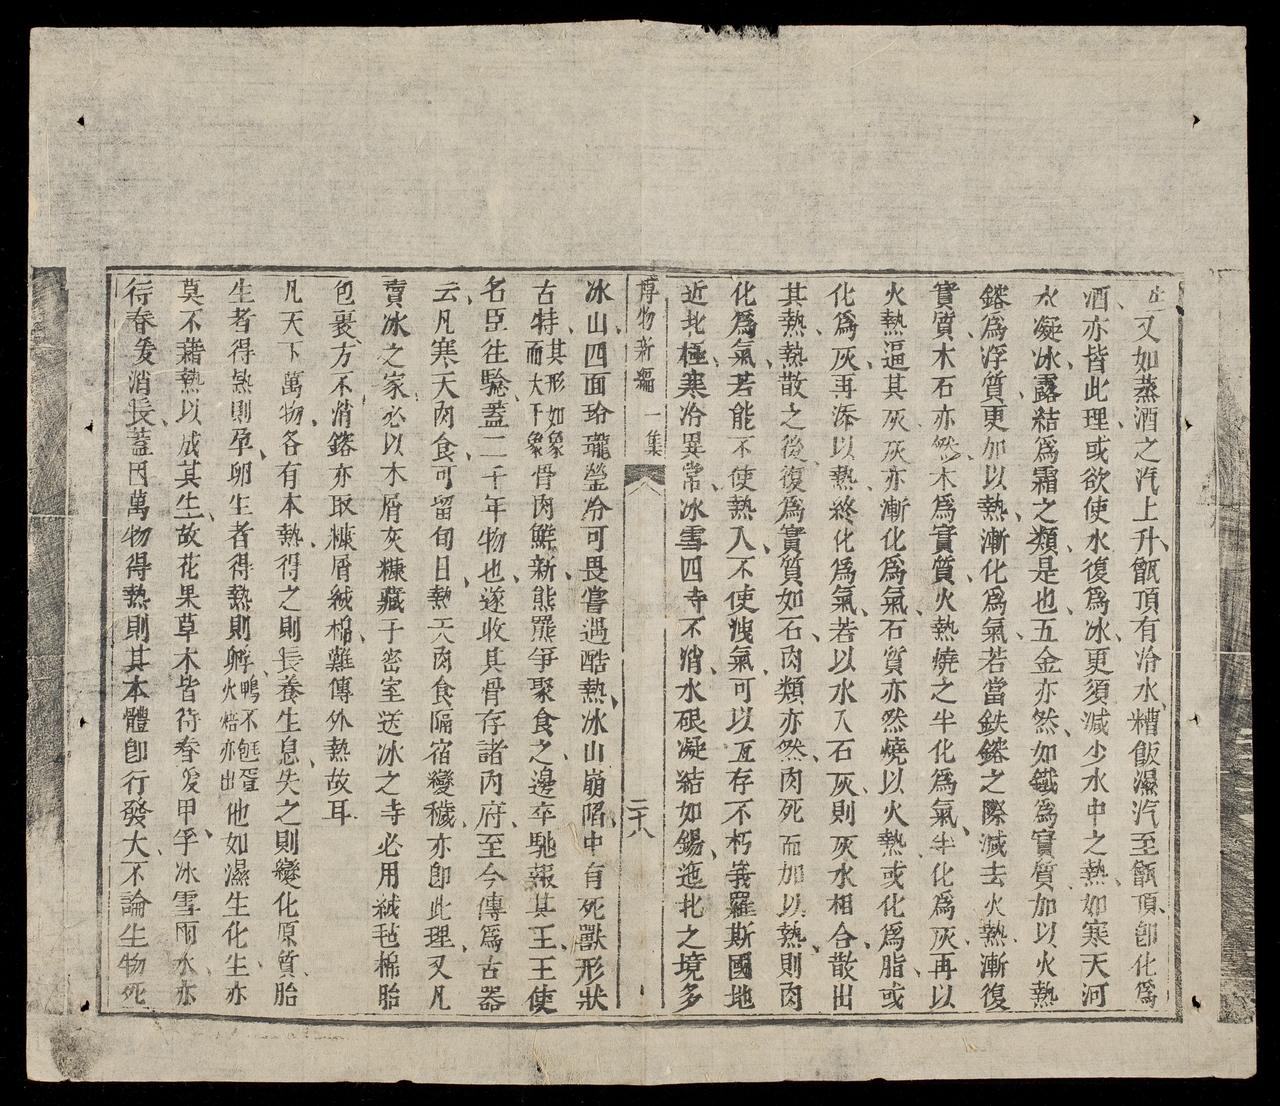 又如蒸酒之汽上升、甑頂有冷水、糟飯濕汽至甑頂、卽化爲
酒、亦皆此理、或欲使水復爲冰、更須減少水中之熱、如寒天河
水凝冰、露結爲霜之類是也、五金亦然、如鐵爲實質、加以火熱
鎔爲浮質、更加以熱、漸化爲氣、若當鉄鎔之際、減去火熱、漸復
實質、木石亦然、木爲實質、火熱燒之、半化爲氣、半化爲灰、再以
火熱逼其灰、灰亦漸化爲氣、石質亦然、燒以火熱、或化爲脂、或
化爲灰、再添以熱、終化爲氣、若以水入石灰、則灰水相合、散出
其熱、熱散之後、復爲實質如石、肉類亦然、肉死而加以熱、則肉
化爲氣、若能不使熱入、不使洩氣、可以亙存不朽、峩羅斯國地
近北極、寒冷異常、冰雪四時不消、水硍凝結如錫、迤北之境多
博物新編 一集 二十八
冰山、四面玲瓏、瑩冷可畏、嘗遇酷熱、冰山崩陷、中有死獸、形狀
古特、其形如象而大于象骨肉鮮新、熊羆爭聚食之、邊卒馳報其王、王使
名臣往驗、蓋二千年物也、遂收其骨存諸內府、至今傳爲古器
云、凡寒天肉食、可留旬日、熱天肉食、隔宿變穢、亦卽此理、又凡
賣冰之家、必以木屑灰糠藏于密室、送冰之時、必用絨毡棉胎
包裹、方不消鎔、亦取糠屑絨棉、難傳外熱故耳
凡天下萬物、各有本熱、得之則長養生息、失之則變化原質、胎
生者得熱則孕、卵生者得熱則孵、鴨不包蛋火焙亦出他如濕生化生、亦
莫不藉熱以成其生、故花果草木皆待春煖甲孚、冰雪雨水、亦
待春煖消長、蓋因萬物得熱、則其本體卽行發大、不論生物死